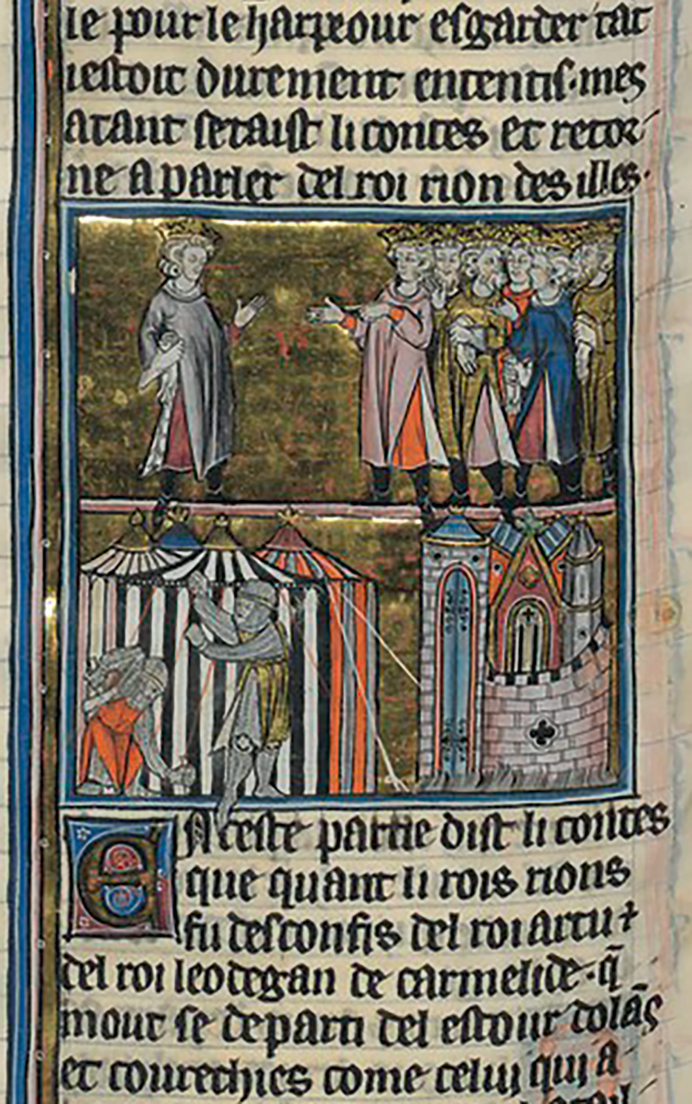 ie pour le harpeour esgarder tāt
iestoit durement ententis·mes
atant se taist li contes et retor-
ne a parler del roi rion des illes·
EN ceste partie dist li contes
que quant li rois rions
fu desconfis del roi artu ⁊
del roi leodegan de carmelide·q̄
mout se departi del estour dolās
et courechies come celui qui a